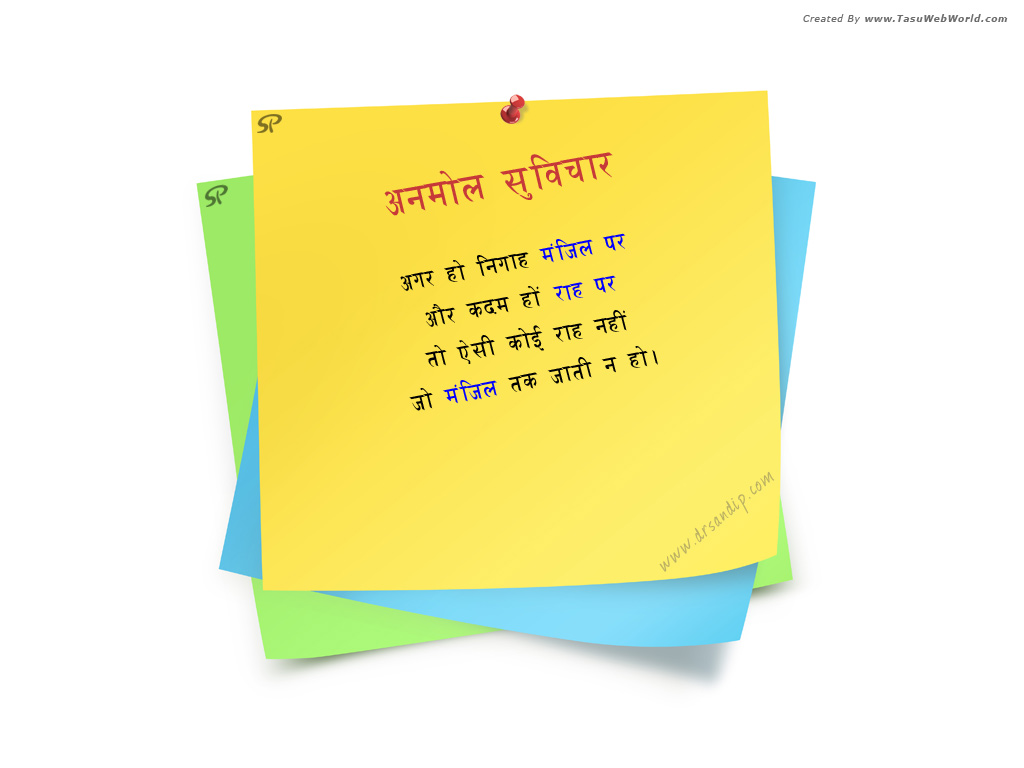 Created By www.TasuWebWorld.com
SP
SP
अनमोल सुविचार
अगर हो निगाह मंजिल पर
और कदम हों राह पर
तो ऐसी कोई राह नहीं
जो मंजिल तक जाती न हो।
www.drsandip.com